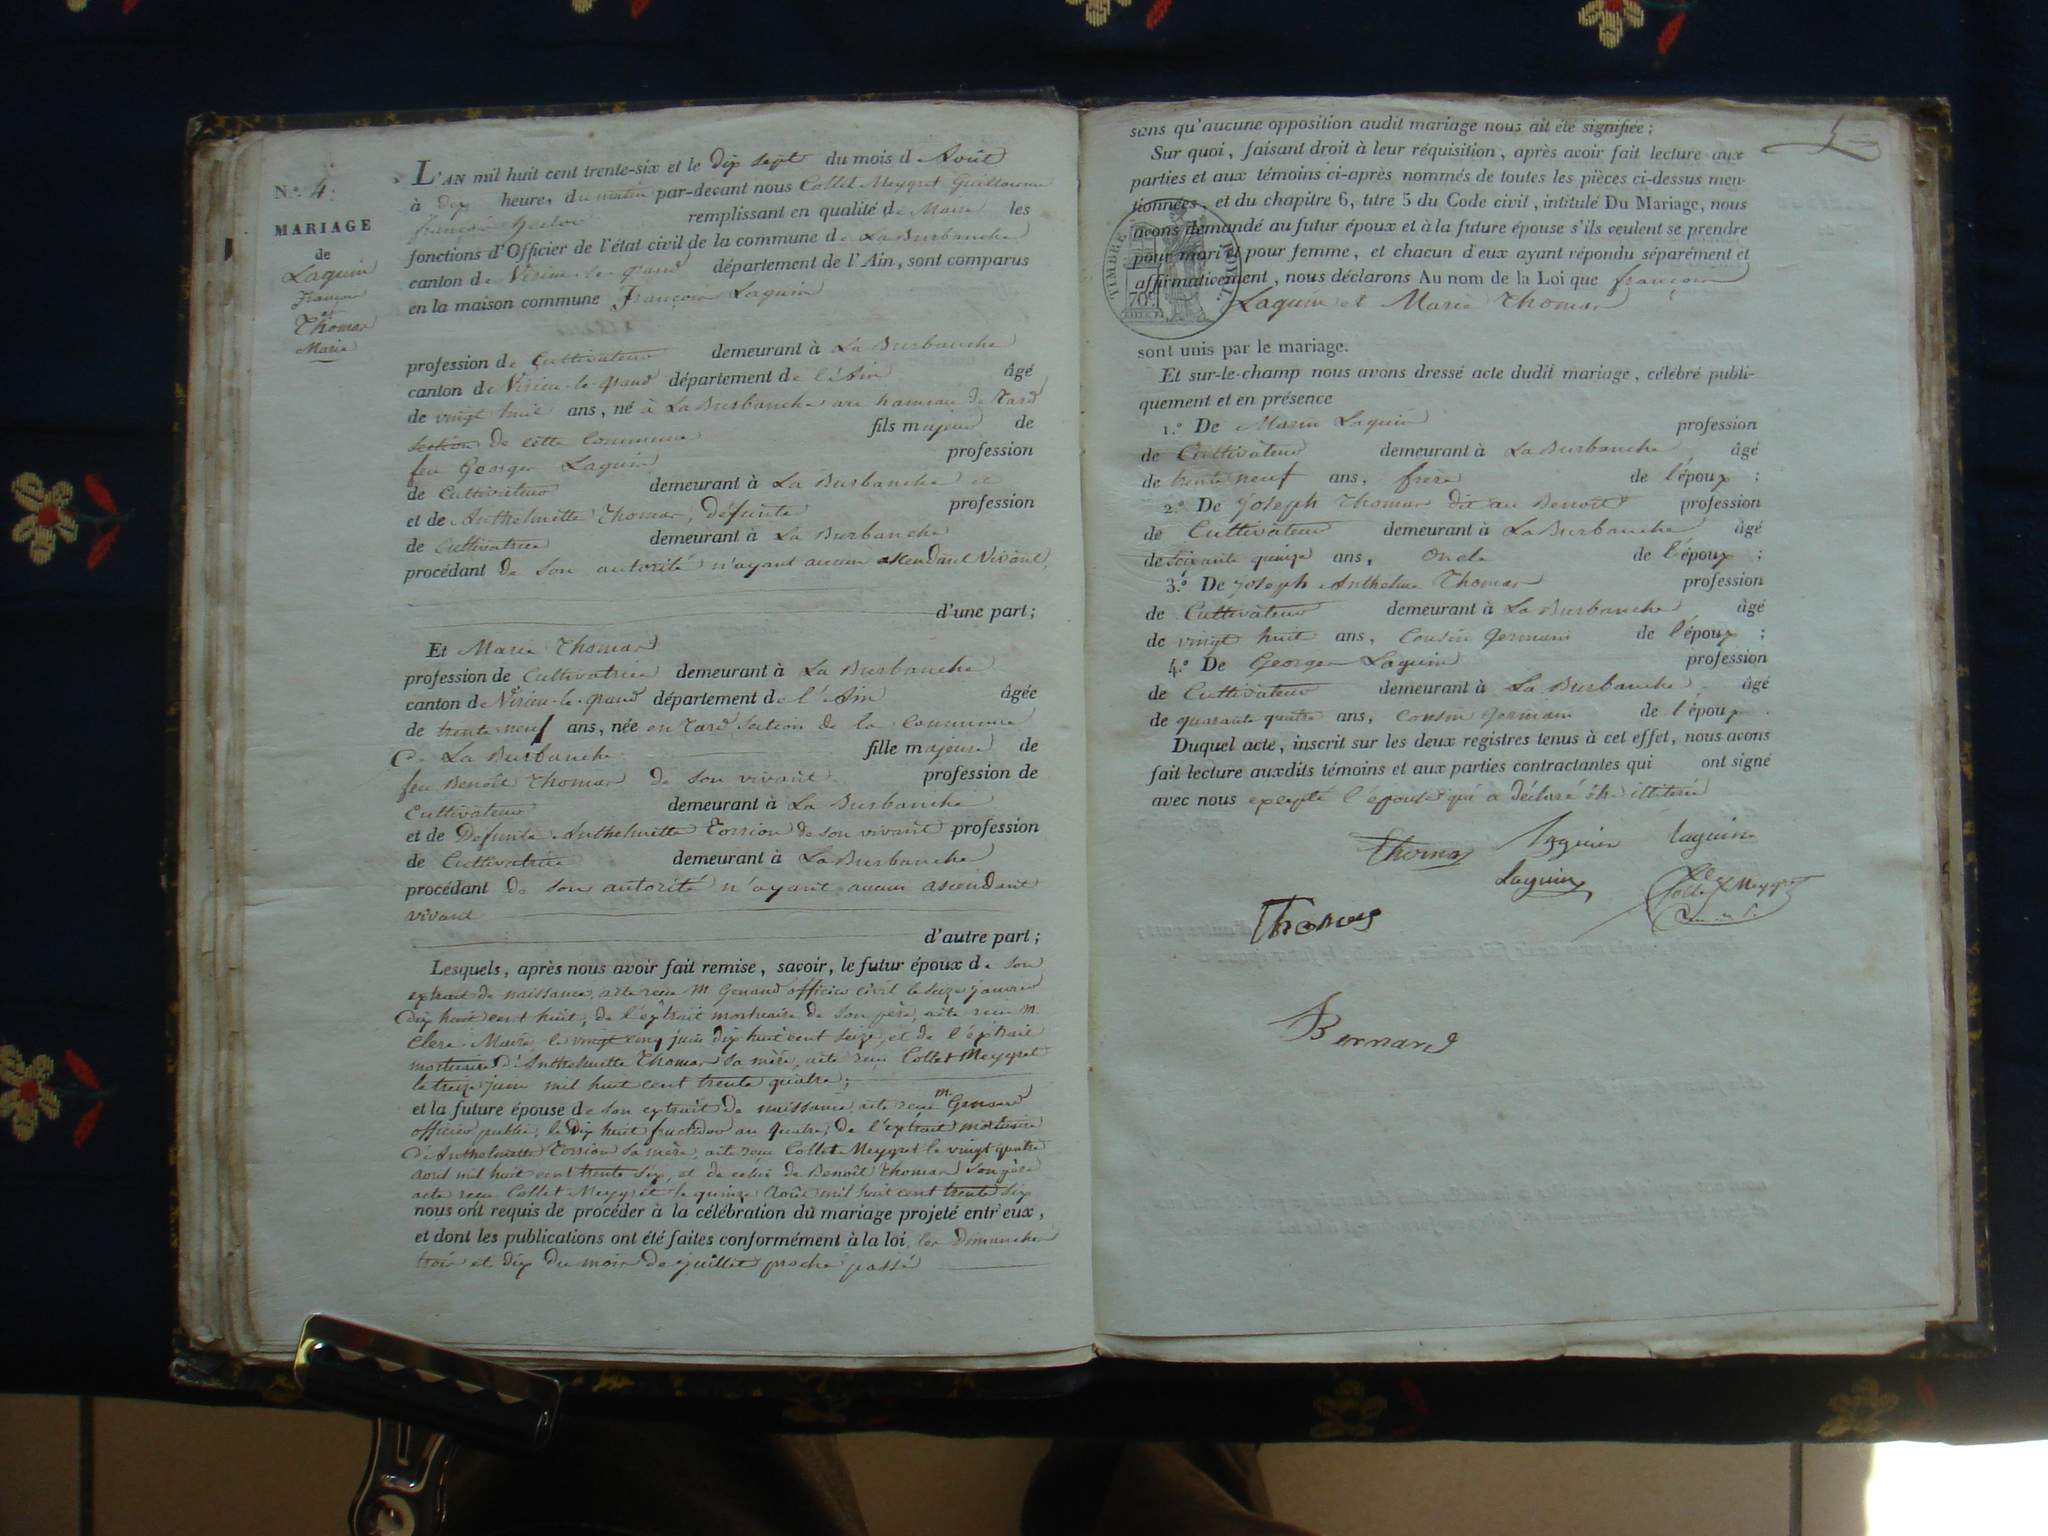 N.° 4.
MARIAGE
de
Laguin
François
et
Thomas
Marie
L'AN mil huit cent trente-six et le dix sept du mois d Août
à dix heures du matin par-devant nous Collet Meygret Guillaume
françois remplissant en qualité de Maire les
fonctions d'Officier de l'état civil de la commune de La Burbanche
canton de Virieu-le-grand département de l'Ain, sont comparus
en la maison commune François Laguin
profession de Cultivateur demeurant à La Burbanche
canton de Virieu-le-grand département de l'Ain âgé
de vingt huit ans, né à La Burbanche au hameau de Tard
section de cette Commune fils majeur de
feu Georges Laguin profession
de Cultivateur demeurant à La Burbanche et
et de Anthelmette Thomas, défunte profession
de Cultivatrice demeurant à La Burbanche
procédant de son autorité n'ayant aucun ascendant vivant,
d'une part;
Et Marie Thomas
profession de Cultivatrice demeurant à La Burbanche
canton de Virieu-le-grand département de l'Ain âgée
de trente neuf ans, née en Tard section de la Commune
De La Burbanche fille majeure de
feu Benoît Thomas de son vivant profession de
Cultivateur demeurant à La Burbanche
et de Defunte Anthelmette Torrion de son vivant profession
de Cultivatrice demeurant à La Burbanche
procédant de son autorité n'ayant aucun ascendant
vivant
d'autre part;
Lesquels, après nous avoir fait remise, savoir, le futur époux de son
extrait de naissance, acte reçu M Genand officier civil le seize janvier
Dix huit cent huit, de l'extrait mortuaire de son père, acte reçu M.
Clerc Maire, le vingt cinq juin dix huit cent seize, et de l'extrait
mortuaire d'Anthelmette Thomas sa mère, acte reçu Collet Meygret
le treize juin mil huit cent trente quatre;
et la future épouse de son extrait de naissance, acte reçu M. Genand
officier public, le dix huit fructidor an quatre, de l'extrait mortuaire
D'Anthelmette Torrion sa mère, acte reçu Collet Meygret le vingt quatre
avril mil huit cent trente six, et de celui de Benoît Thomas son père
acte reçu Collet Meygret le quinze Août mil huit cent trente six
nous ont requis de procéder à la célébration du mariage projeté entr'eux,
et dont les publications ont été faites conformément à la loi, les dimanches
trois et dix du mois de juillet proche passé
sans qu'aucune opposition audit mariage nous ait été signifiée;
Sur quoi, faisant droit à leur réquisition, après avoir fait lecture aux
parties et aux témoins ci-après nommés de toutes les pièces ci-dessus men-
tionnées, et du chapitre 6, titre 5 du Code civil, intitulé Du Mariage, nous
avons demandé au futur époux et à la future épouse s'ils veulent se prendre
pour mari et pour femme, et chacun d'eux ayant répondu séparément et
affirmativement, nous déclarons Au nom de la Loi que françois
Laguin et Marie Thomas
TIMBRE ROYAL
70c.
sont unis par le mariage.
Et sur-le-champ nous avons dressé acte dudit mariage, célébré publi-
quement et en présence
1.° De Marin Laguin profession
de Cultivateur demeurant à La Burbanche âgé
de trente neuf ans, frère de l'époux;
2.° De Joseph Thomas dit au Benoît profession
de Cultivateur demeurant à La Burbanche âgé
de soixante quinze ans, oncle de l'époux;
3.° De Joseph Anthelme Thomas profession
de Cultivateur demeurant à La Burbanche âgé
de vingt huit ans, Cousin Germain de l'époux;
4.° De Georges Laguin profession
de Cultivateur demeurant à La Burbanche âgé
de quarante quatre ans, Cousin Germain de l'époux.
Duquel acte, inscrit sur les deux registres tenus à cet effet, nous avons
fait lecture auxdits témoins et aux parties contractantes qui ont signé
avec nous excepté l'épouse qui a déclaré être illitérée
Thomas Laguin laguin
Laguin Collet Meygret
Thomas
Bernard